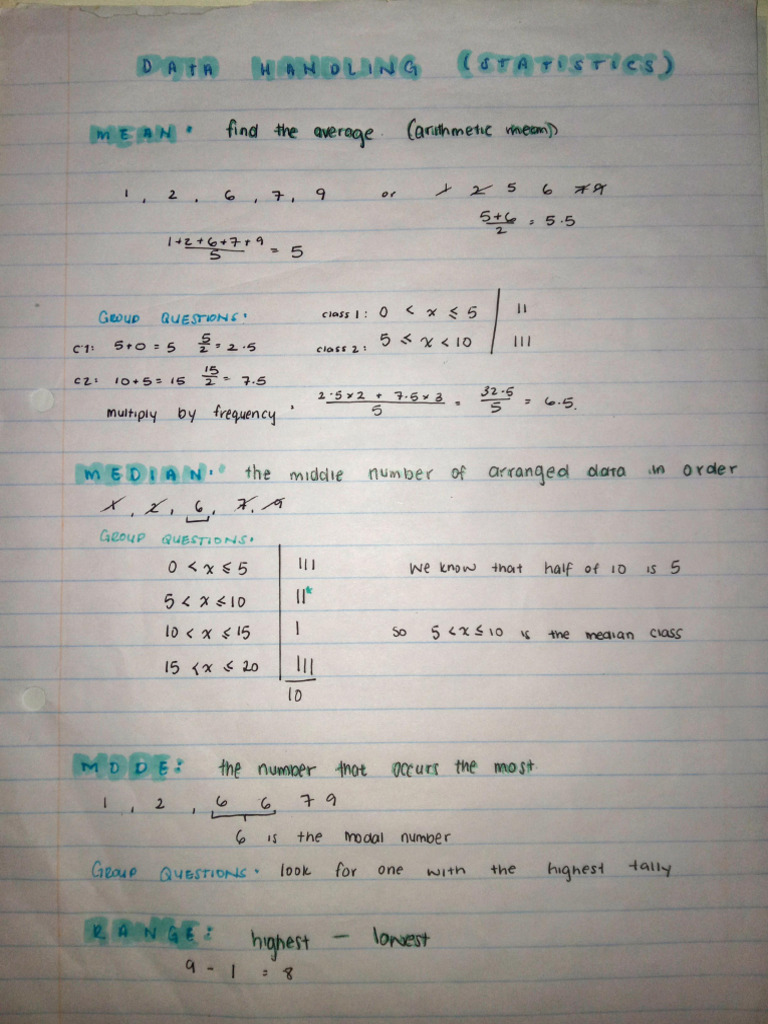 DATA HANDLING (STATISTICS)
MEAN: find the average. (arithmetic mean)
1, 2, 6, 7, 9 or 1 2 5 6 7 9
5+6/2 = 5.5
1+2+6+7+9/5 = 5
GROUP QUESTIONS: class 1: 0 < x ≤ 5 | II
C1: 5+0 = 5 5/2 = 2.5 class 2: 5 ≤ x < 10 | III
C2: 10+5 = 15 15/2 = 7.5
multiply by frequency. 2.5×2 + 7.5×3/5 = 32.5/5 = 6.5.
MEDIAN: the middle number of arranged data in order
1, 2, 6, 7, 9
GROUP QUESTIONS:
0 < x ≤ 5 | III We know that half of 10 is 5
5 < x ≤ 10 | II*
10 < x ≤ 15 | I so 5 < x ≤ 10 is the median class
15 < x ≤ 20 | III
10
MODE: the number that occurs the most
1, 2, 6 6 7 9
6 is the modal number
GROUP QUESTIONS: look for one with the highest tally
RANGE: highest – lowest
9 - 1 = 8